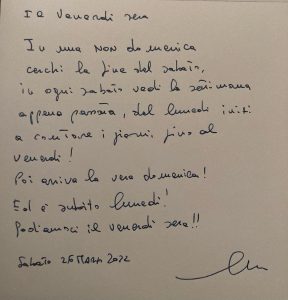 Il Venerdì sera
In una NON domenica
cerchi la fine del sabato,
in ogni sabato vedi la settimana
appena passata, dal lunedì inizi
a contare i giorni, fino al
venerdì!
Poi arriva la vera domenica!
Ed è subito lunedì!
Godiamoci il venerdì sera!!
Sabato 26 Marzo 2022